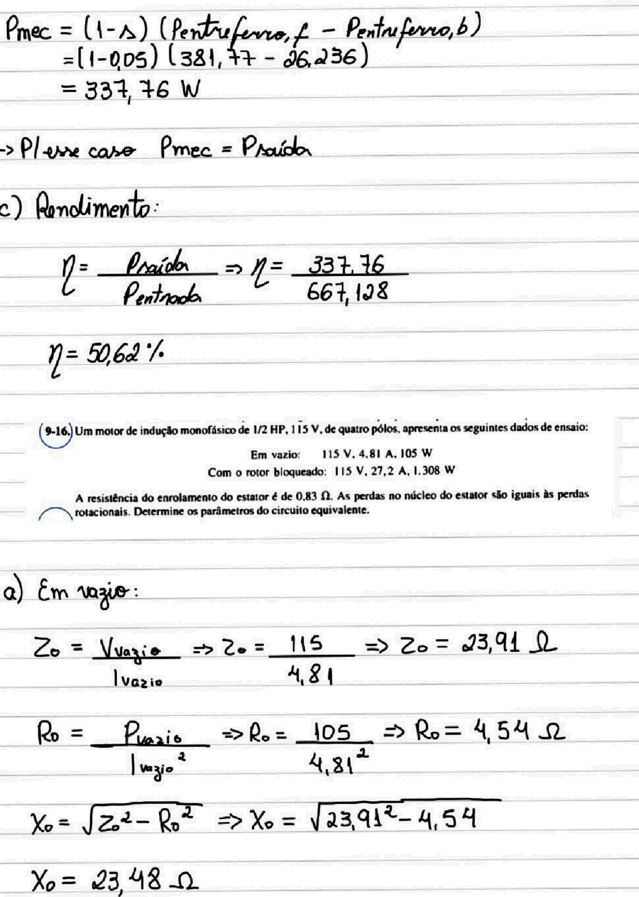 Pmec = (1-s) (Pentreferro,f - Pentreferro,b)
= (1-0,05) (381,77 - 26,236)
= 337,76 W
-> P/ esse caso Pmec = Psaída
c) Rendimento:
η = Psaída / Pentrada => η = 337,76 / 667,128
η = 50,62 %
9-16. Um motor de indução monofásico de 1/2 HP, 115 V, de quatro pólos, apresenta os seguintes dados de ensaio:
Em vazio: 115 V, 4,81 A, 105 W
Com o rotor bloqueado: 115 V, 27,2 A, 1.308 W
A resistência do enrolamento do estator é de 0,83 Ω. As perdas no núcleo do estator são iguais às perdas
rotacionais. Determine os parâmetros do circuito equivalente.
a) Em vazio:
Zo = Vvazio / Ivazio => Zo = 115 / 4,81 => Zo = 23,91 Ω
Ro = Pvazio / Ivazio² => Ro = 105 / 4,81² => Ro = 4,54 Ω
Xo = √Zo² - Ro² => Xo = √23,91² - 4,54
Xo = 23,48 Ω